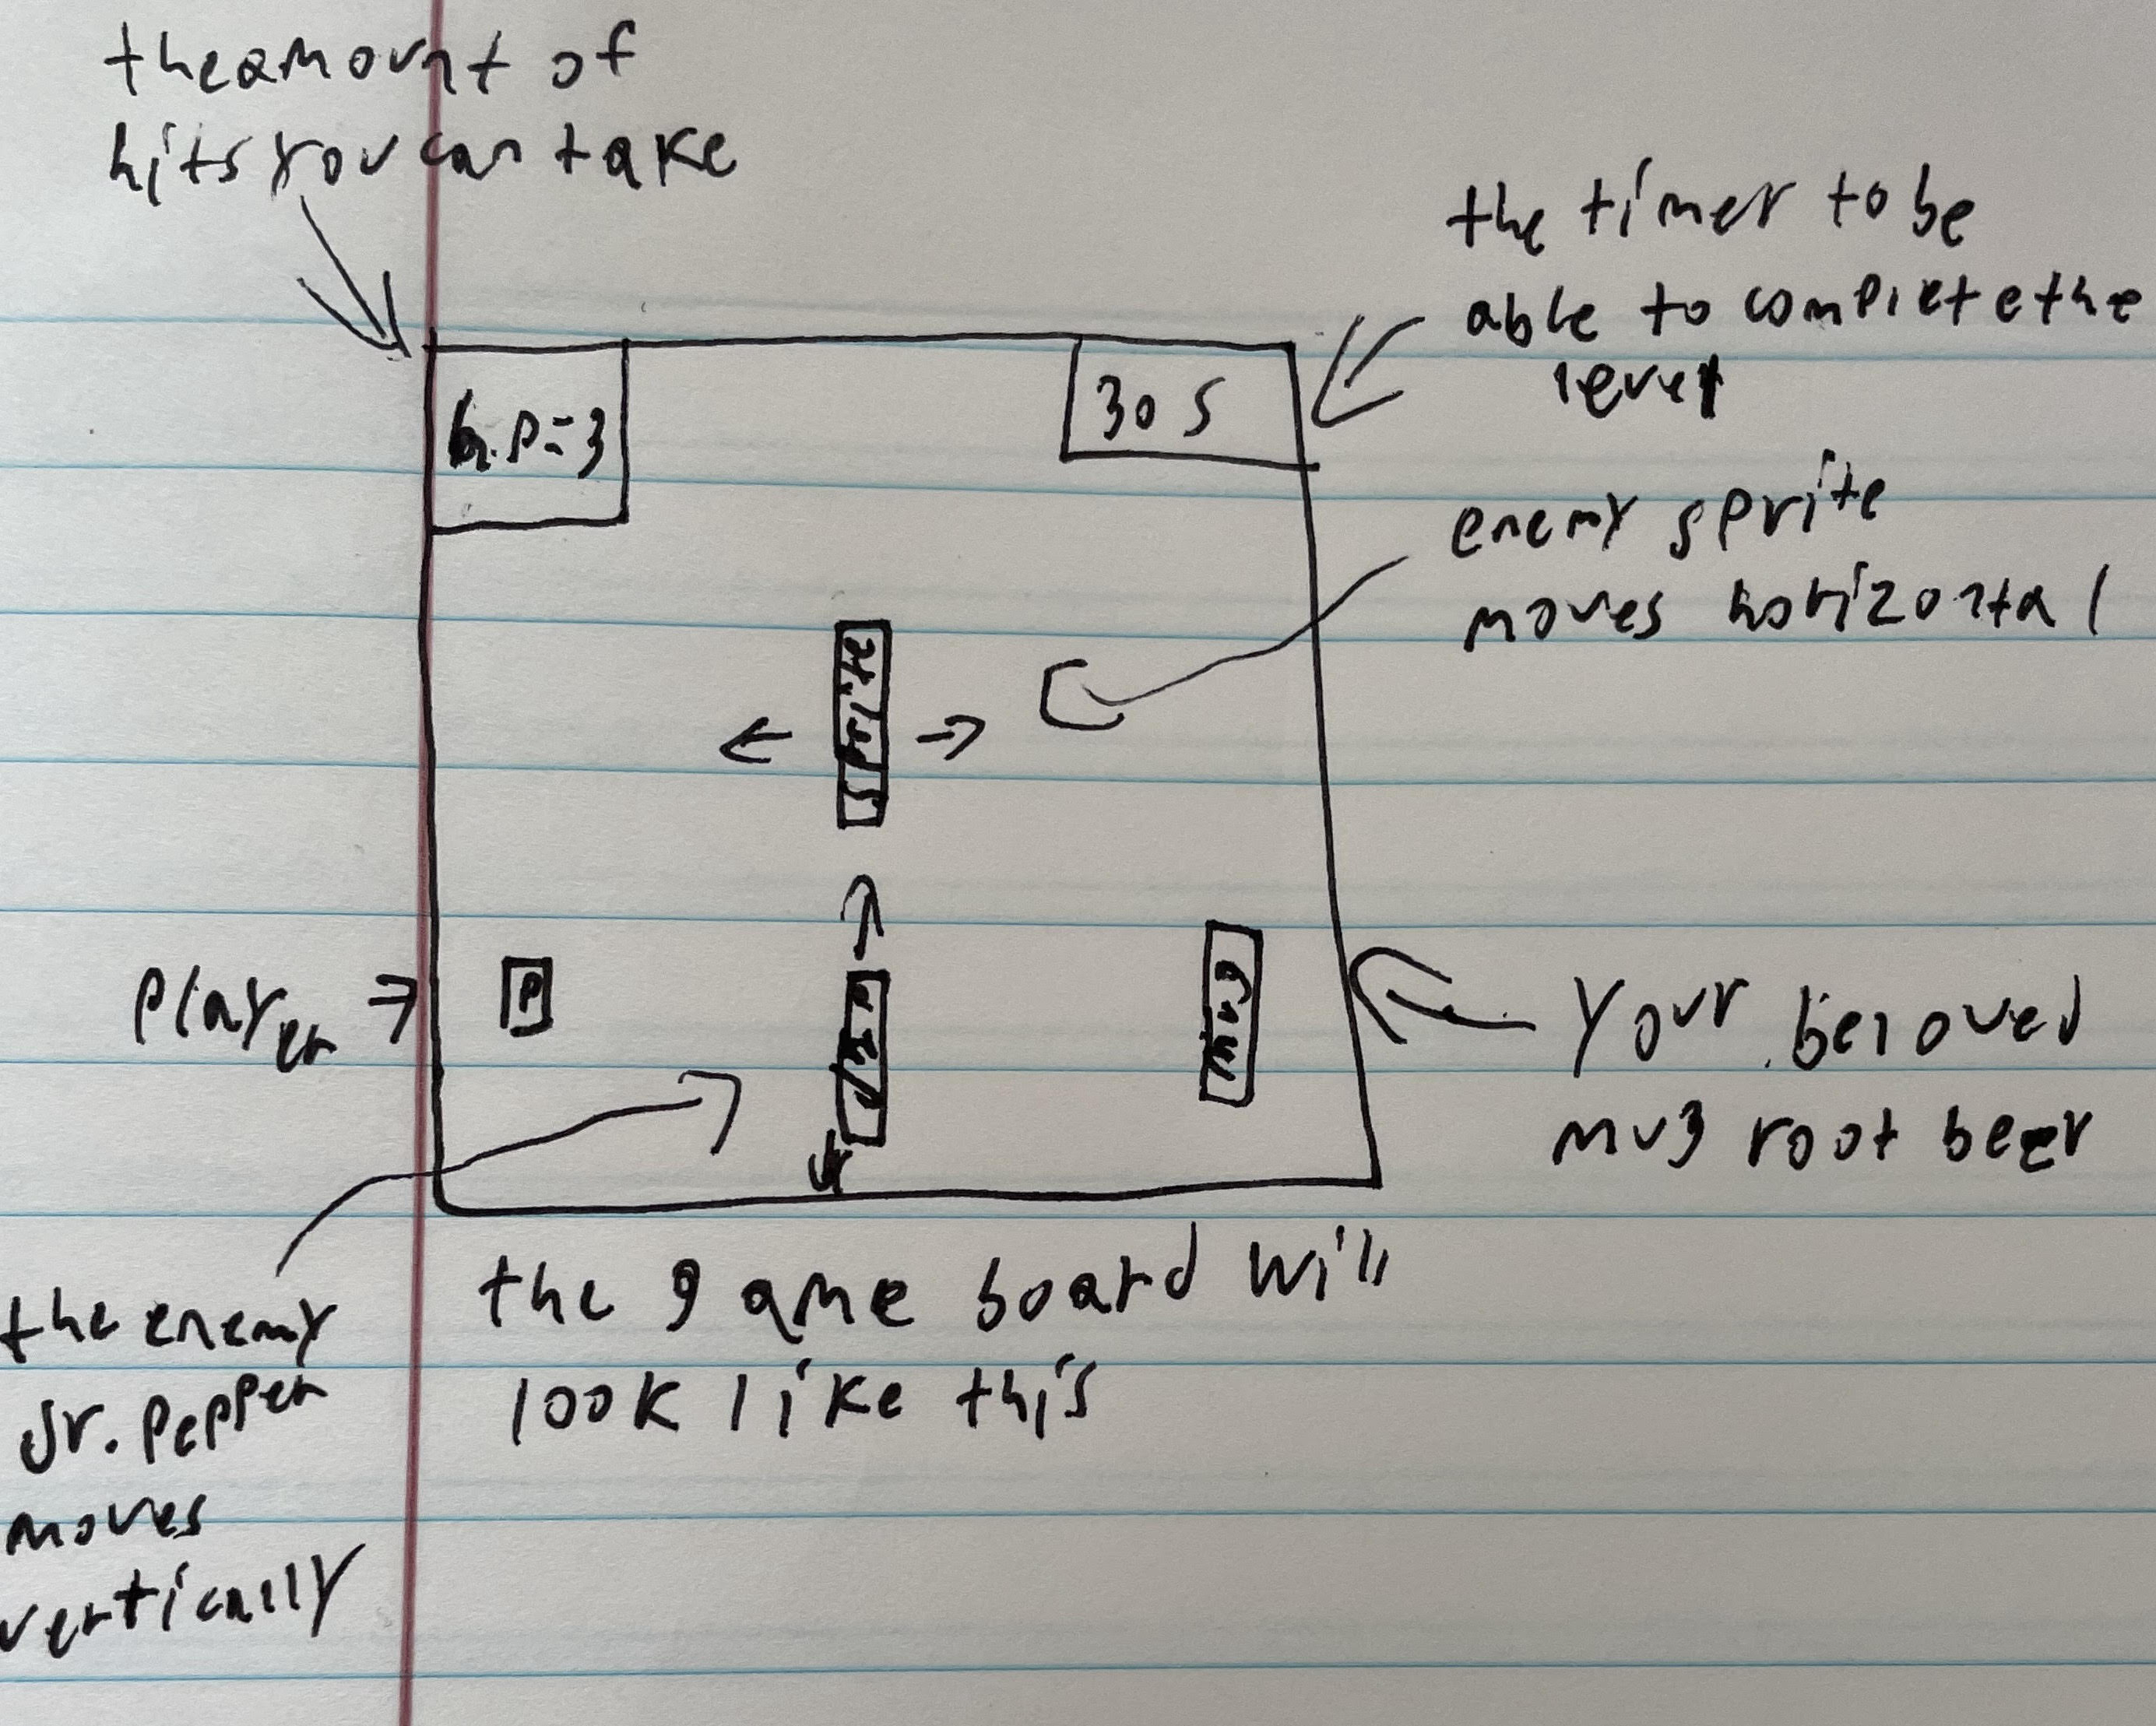 the amount of
hits you can take
the timer to be
able to complete the
level
h.p=3
30 s
enemy sprite
moves horizontal
sprite
player
P
mug
your beloved
mug root beer
the enemy
dr. pepper
moves
vertically
the game board will
look like this